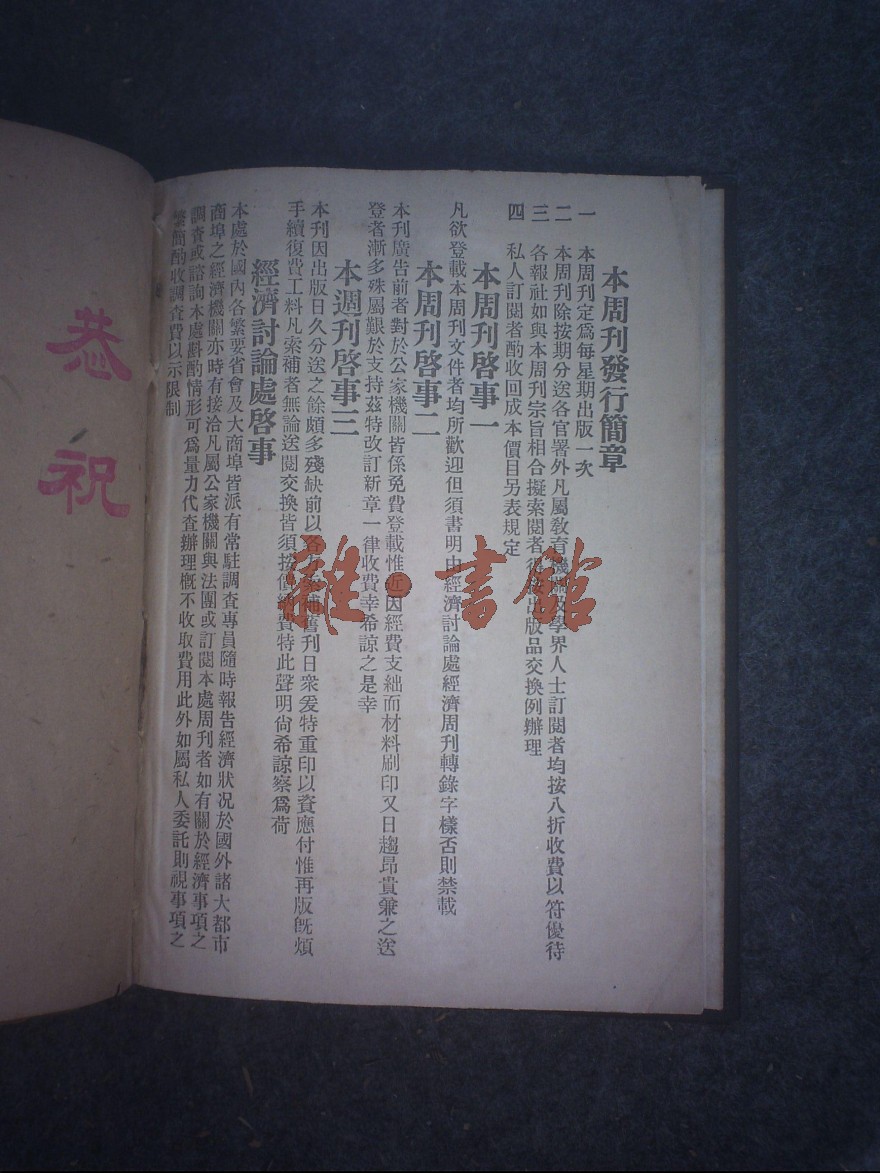 本周刊發行簡章
一 本周刊定爲每星期出版一次
二 本周刊除按期分送各官署外凡屬敎育機關及學界人士訂閱者均按八折收費以符優待
三 各報社如與本周刊宗旨相合擬索閱者得按出版品交換例辦理
四 私人訂閱者酌收回成本價目另表規定
本周刊啓事一
凡欲登載本周刊文件者均所歡迎但須書明由經濟討論處經濟周刊轉錄字樣否則禁載
本周刊啓事二
本刊廣告前者對於公家機關皆係免費登載惟近因經費支絀而材料刷印又日趨昂貴兼之送
登者漸多殊屬艱於支持茲特改訂新章一律收費幸希諒之是幸
本週刊啓事三
本刊因出版日久分送之餘頗多殘缺前以各方索補舊刊日衆爰特重印以資應付惟再版旣煩
手續復費工料凡索補者無論送閱交換皆須按値納費特此聲明尙希諒察爲荷
經濟討論處啓事
本處於國內各繁要省會及大商埠皆派有常駐調查專員隨時報告經濟狀况於國外諸大都市
商埠之經濟機關亦時有接洽凡屬公家機關與法團或訂閱本處周刊者如有關於經濟事項之
調查或諮詢本處斟酌情形可爲量力代查辦理槪不收取費用此外如屬私人委託則視事項之
繁簡酌收調查費以示限制
恭祝
雜·書館